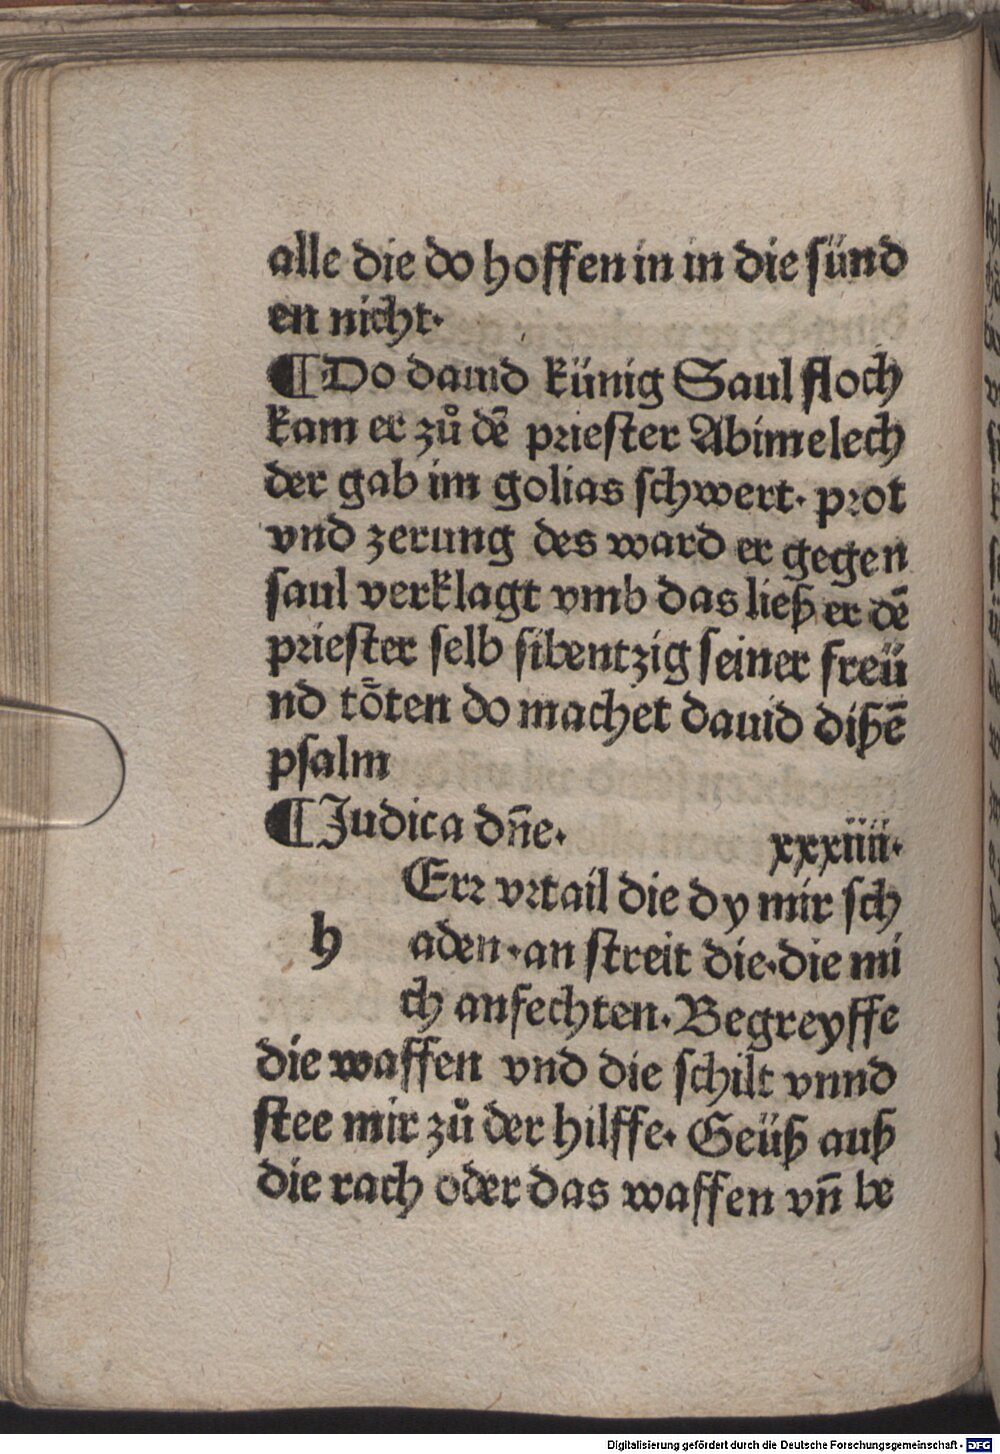 alle die do hoffen in in die sünd
en nicht.
¶Do dauid künig Saul floch
kam er zů dē priester Abimelech
der gab im golias schwert. prot
vnd zerung des ward er gegen
saul verklagt vmb das ließ er dē
priester selb sibentzig seiner freü
nd tȫten do machet dauid dißē
psalm
¶Judica dn̄e. xxxiiii.
Err vrtail die dy mir sch
h aden.an streit die.die mi
ch anfechten.Begreyffe
die waffen vnd die schilt vnnd
stee mir zů der hilffe. Geüß auß
die rach oder das waffen vn̄ be
Digitalisierung gefördert durch die Deutsche Forschungsgemeinschaft - DFG